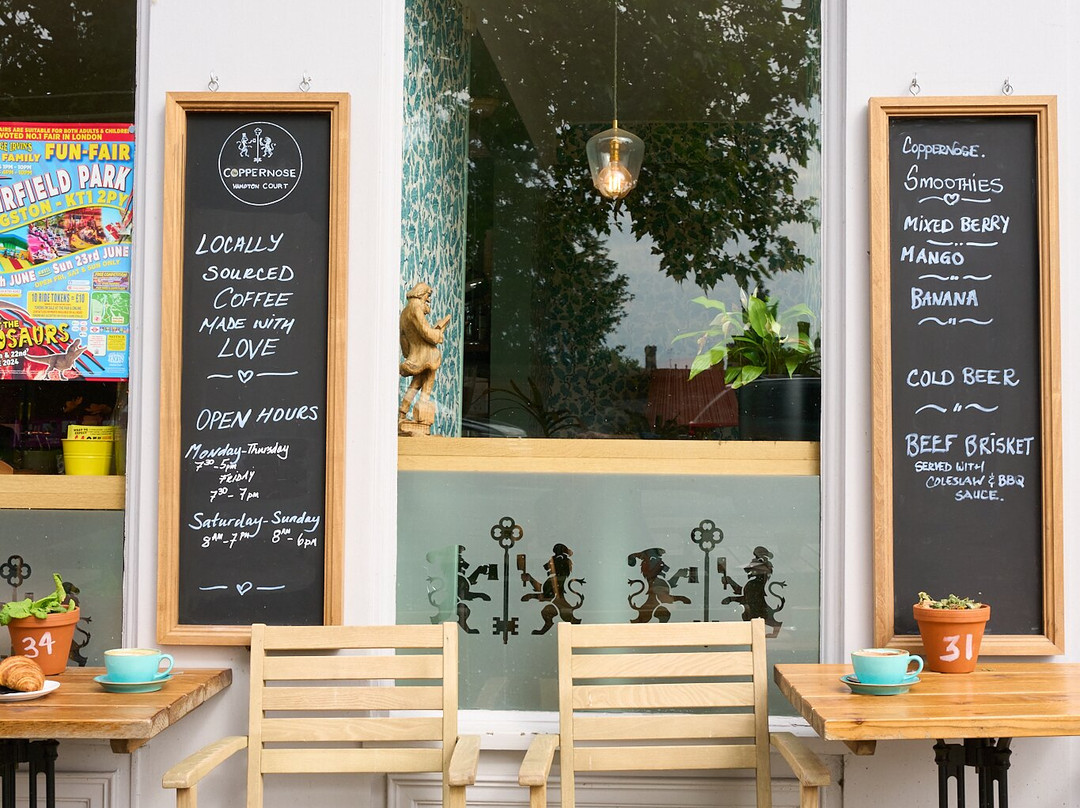 FAIRE ARE SUITABLE FOR BOTH ADULTS & CHILDREN
VOTED NO.1 FAIR IN LONDON
FAMILY
FUN-FAIR
RFIELD PARK
GSTON - KT1 2PY
JUNE
Sun 23rd JUNE
10 RIDE TOKENS = £10
THE
OSAURS
2024
COPPERNOSE
HAMPTON COURT
LOCALLY
SOURCED
COFFEE
MADE WITH
LOVE
OPEN HOURS
Monday-Thursday
7³⁰-5pm
FRIDAY
7³⁰- 7pm
Saturday-Sunday
8AM-7PM 8AM-6pm
COPPERNOSE.
SMOOTHIES
MIXED BERRY
MANGO
BANANA
COLD BEER
BEEF BRISKET
SERVED WITH
COLESLAW & BBQ
SAUCE.
34
31